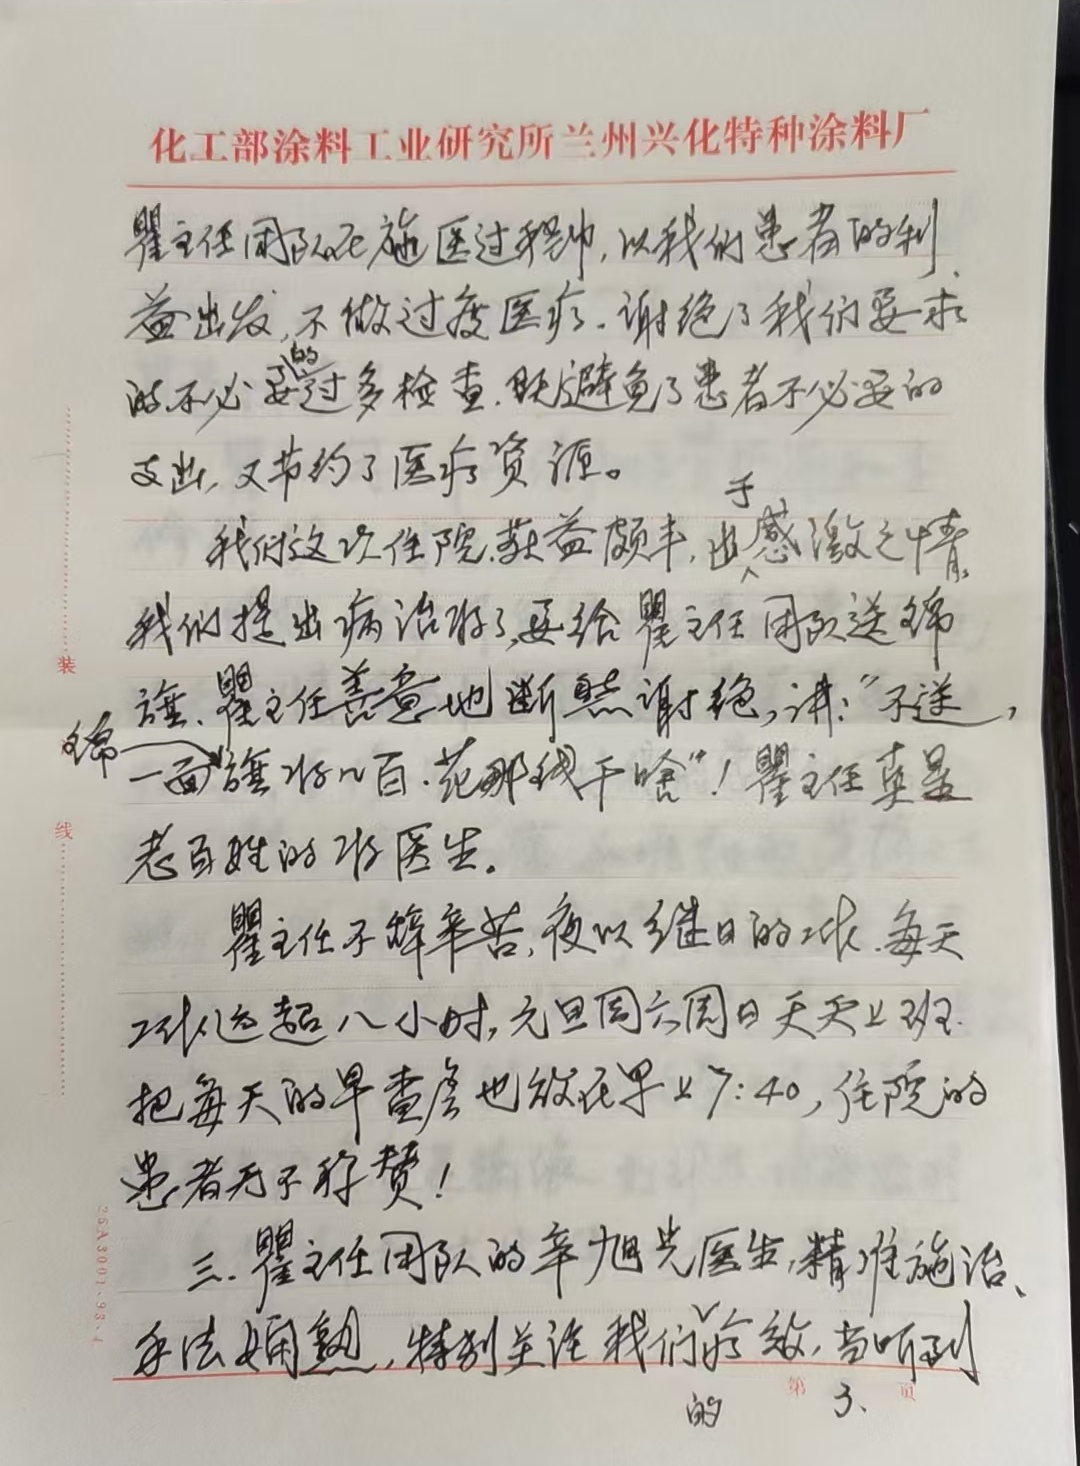 化工部涂料工业研究所兰州兴化特种涂料厂
瞿主任团队在施医过程中，以我们患者的利
益出发，不做过度医疗.谢绝了我们要求
的不必要的过多检查.既避免了患者不必要的
支出，又节约了医疗资源。
我们这次住院.获益颇丰，出于感激之情，
我们提出病治好了，要给瞿主任团队送锦
旗、瞿主任善意地断然谢绝，讲：“不送，
一面锦旗好几百.花那钱干啥”！瞿主任真是
老百姓的好医生.
瞿主任不辞辛苦，夜以继日的工作.每天
工作远超八小时，元旦周六周日天天上班.
把每天的早查房也放在早上7:40，住院的
患者无不称赞！
三.瞿主任团队的辛旭光医生，精准施治、
手法娴熟，特别关注我们的疗效，当听到
第 3、 页
装
线
25A3001·98·4